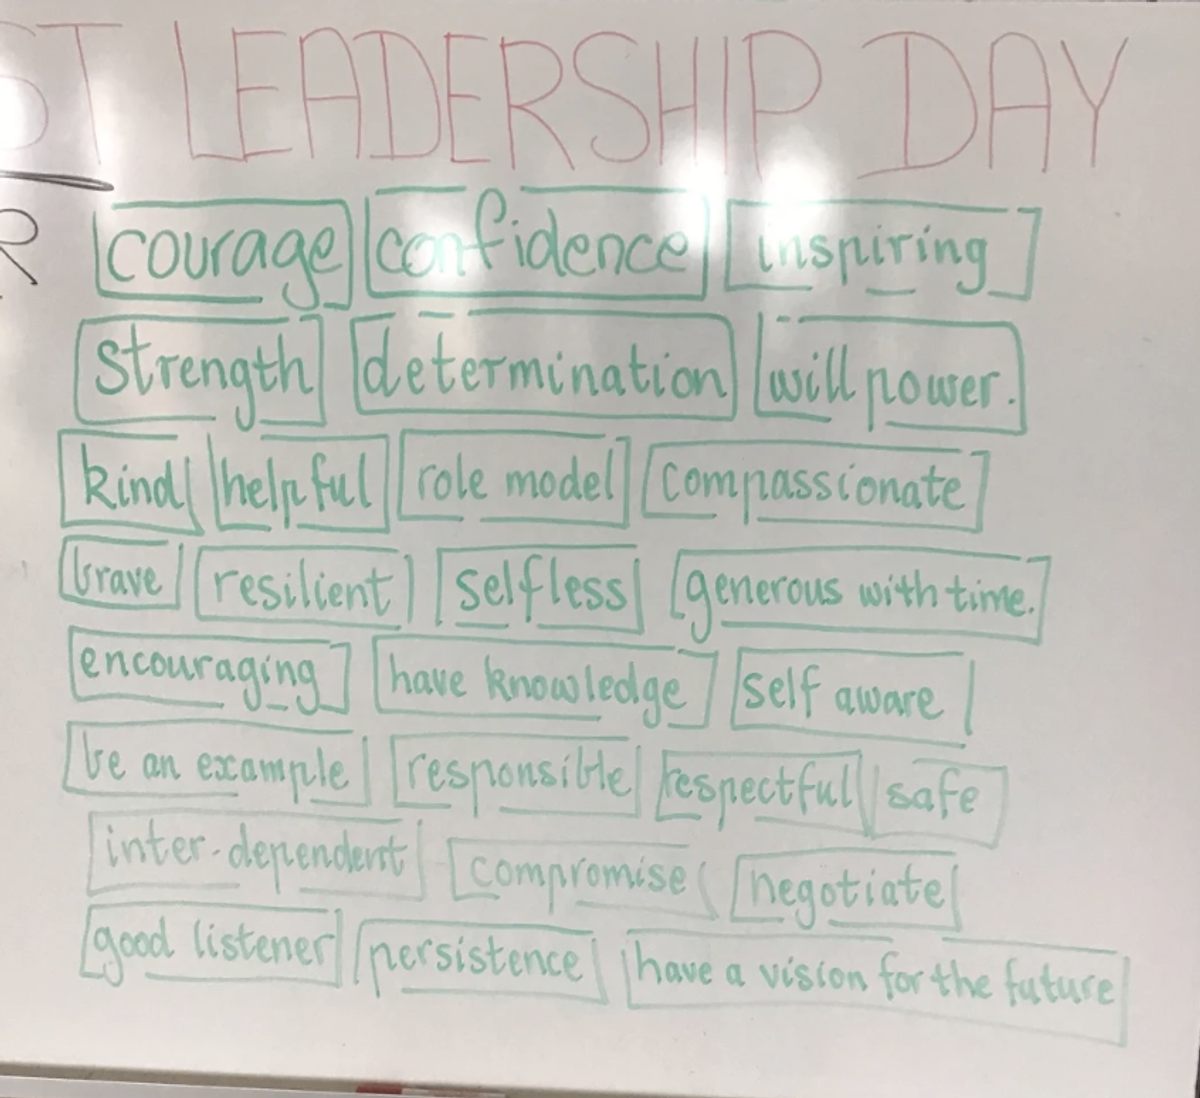 ST LEADERSHIP DAY
R courage confidence inspiring
Strength determination will power.
kind helpful role model compassionate
brave resilient selfless generous with time.
encouraging have knowledge self aware
be an example responsible respectful safe
inter-dependent compromise negotiate
good listener persistence have a vision for the future